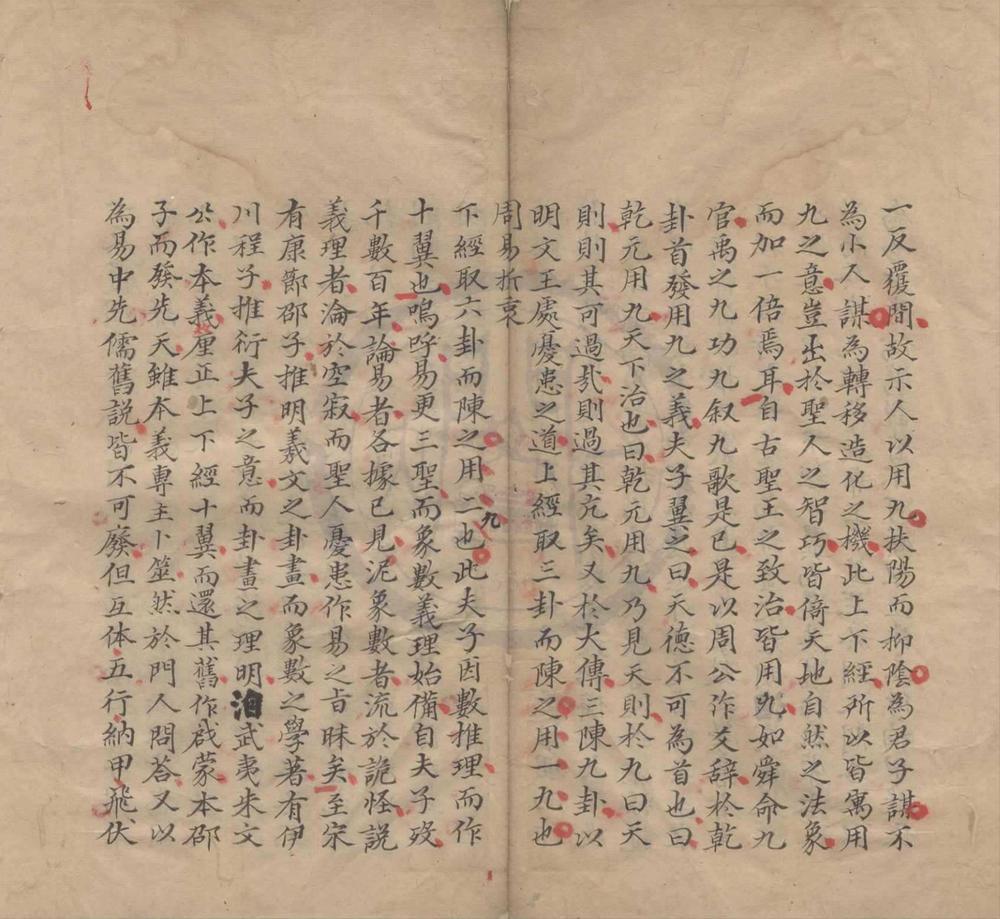 一反覆間故示人以用九扶陽而抑陰為君子謀不
為小人謀為轉移造化之機此上下經所以皆寓用
九之意豈出於聖人之智巧皆倚天地自然之法象
而加一倍焉耳自古聖王之致治皆用九如舜命九
官禹之九功九叙九歌是已是以周公作爻辞於乾
卦首發用九之義夫子翼之曰天德不可為首也曰
乾元用九天下治也曰乾元用九乃見天則於九曰天
則則其可過㢤則過其亢矣又於大傳三陳九卦以
明文王處憂患之道上經取三卦而陳之用一九也
周易折衷
下經取六卦而陳之用二九也此夫子因數推理而作
十翼也嗚呼易更三聖而象數義理始備自夫子歿
千數百年論易者各據已見泥象數者流於詭怪説
義理者淪於空寂而聖人憂患作易之㫖昧矣至宋
有康節邵子推明羲文之卦畫而象數之學著有伊
川程子推衍夫子之意而卦畫之理明洎武夷朱文
公作本義厘正上下經十翼而還其舊作啟蒙本邵
子而發先天雖本義專主卜筮然於門人問荅又以
為易中先儒舊説皆不可廢但互体五行納甲飛伏